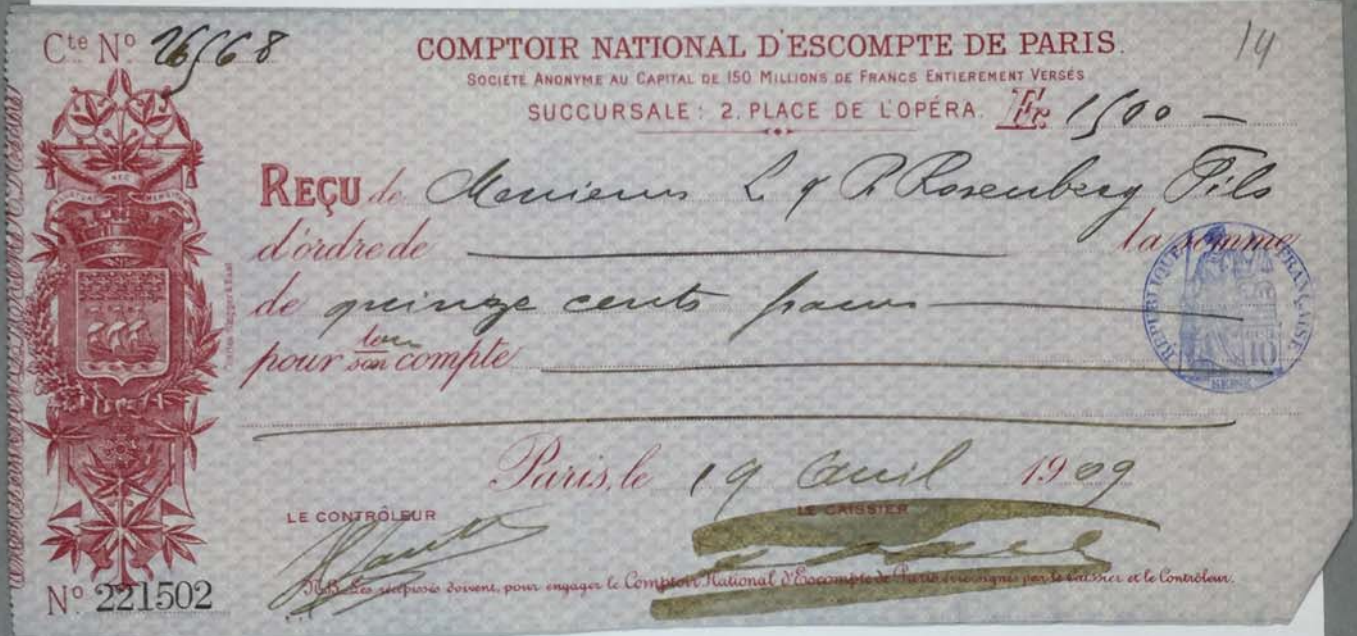 Cte No 26568
14
COMPTOIR NATIONAL D'ESCOMPTE DE PARIS.
SOCIÉTÉ ANONYME AU CAPITAL DE 150 MILLIONS DE FRANCS ENTIEREMENT VERSÉS
SUCCURSALE: 2. PLACE DE L'OPÉRA. Fr 1500 —
NEC
REÇU de Messieurs L & P Rosenberg Fils
d'ordre de la somme
de quinze cents francs
pour son compte
leur
RÉPUBLIQUE FRANÇAISE
10
Paris, le 19 Avril 1909
LE CONTRÔLEUR
LE CAISSIER
N.B. Les récépissés doivent, pour engager le Comptoir National d'Escompte de Paris être signés par le Caissier et le Contrôleur.
No 221502